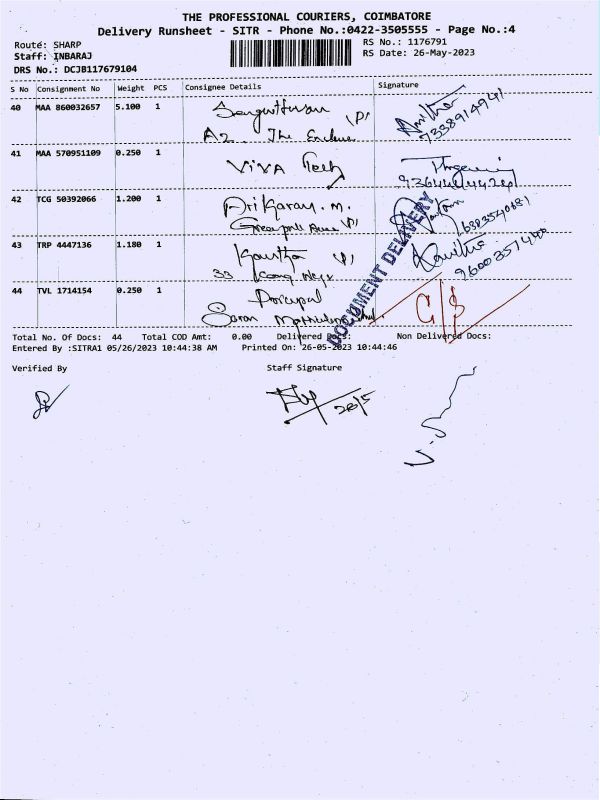 THE PROFESSIONAL COURIERS, COIMBATORE
Delivery Runsheet - SITR - Phone No.:0422-3505555 - Page No.:4
Route: SHARP
RS No.: 1176791
Staff: INBARAJ
RS Date: 26-May-2023
DRS No.: DCJB117679104
S No Consignment No Weight PCS Consignee Details Signature
40 MAA 860032657 5.100 1
A2. The Enclave
7338914941
41 MAA 570951109 0.250 1 ViVA Tech
42 TCG 50392066 1.200 1 M.
6383540681
43 TRP 4447136 1.180 1
33
9600351440
44 TVL 1714154 0.250 1
DOCUMENT DELIVERY
Total No. Of Docs: 44 Total COD Amt: 0.00 Delivered Docs: Non Delivered Docs:
Entered By :SITRA1 05/26/2023 10:44:38 AM Printed On: 26-05-2023 10:44:46
Verified By Staff Signature
26/5